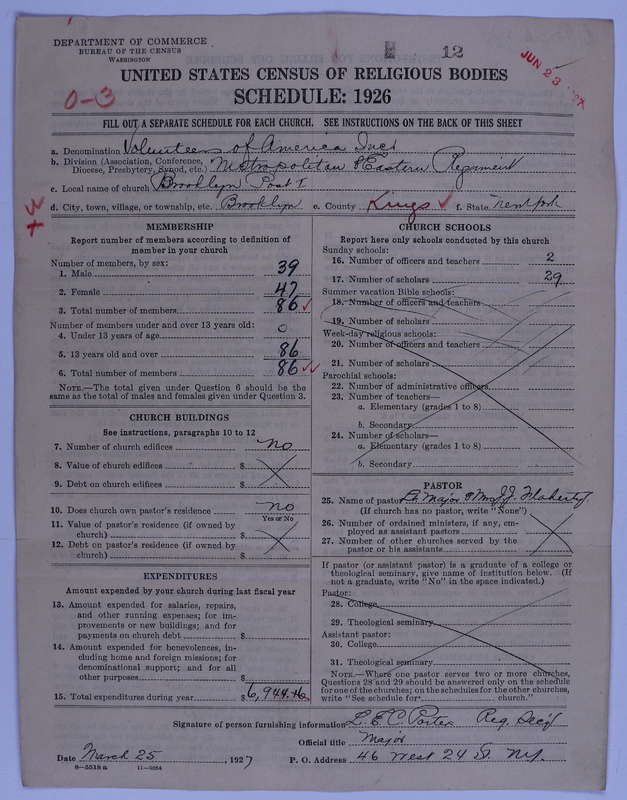 DEPARTMENT OF COMMERCE
BUREAU OF THE CENSUS
WASHINGTON
12
JUN 23
UNITED STATES CENSUS OF RELIGIOUS BODIES
0-3
SCHEDULE: 1926
FILL OUT A SEPARATE SCHEDULE FOR EACH CHURCH. SEE INSTRUCTIONS ON THE BACK OF THIS SHEET
a. Denomination Volunteers of America Inc
b. Division (Association, Conference, Diocese, Presbytery, Synod, etc.) Metropolitan & Eastern Regiment
c. Local name of church Brooklyn Post 1
d. City, town, village, or township, etc. Brooklyn e. County Kings f. State New York
MEMBERSHIP
Report number of members according to definition of
member in your church
Number of members, by sex:
1. Male 39
2. Female 47
3. Total number of members 86
Number of members under and over 13 years old:
4. Under 13 years of age 0
5. 13 years old and over 86
6. Total number of members 86
NOTE.—The total given under Question 6 should be the
same as the total of males and females given under Question 3.
CHURCH BUILDINGS
See instructions, paragraphs 10 to 12
7. Number of church edifices no
8. Value of church edifices $
9. Debt on church edifices $
10. Does church own pastor's residence no
Yes or No
11. Value of pastor's residence (if owned by
church) $
12. Debt on pastor's residence (if owned by
church) $
EXPENDITURES
Amount expended by your church during last fiscal year
13. Amount expended for salaries, repairs,
and other running expenses; for im-
provements or new buildings; and for
payments on church debt $
14. Amount expended for benevolences, in-
cluding home and foreign missions; for
denominational support; and for all
other purposes $
15. Total expenditures during year $ 6,944.16
CHURCH SCHOOLS
Report here only schools conducted by this church
Sunday schools:
16. Number of officers and teachers 2
17. Number of scholars 29
Summer vacation Bible schools:
18. Number of officers and teachers
19. Number of scholars
Week-day religious schools:
20. Number of officers and teachers
21. Number of scholars
Parochial schools:
22. Number of administrative officers
23. Number of teachers—
a. Elementary (grades 1 to 8)
b. Secondary
24. Number of scholars—
a. Elementary (grades 1 to 8)
b. Secondary
PASTOR
25. Name of pastor Lt. Major & Mrs J.J. Flaherty
(If church has no pastor, write "None")
26. Number of ordained ministers, if any, em-
ployed as assistant pastors
27. Number of other churches served by the
pastor or his assistants
If pastor (or assistant pastor) is a graduate of a college or
theological seminary, give name of institution below. (If
not a graduate, write "No" in the space indicated.)
Pastor:
28. College
29. Theological seminary
Assistant pastor:
30. College
31. Theological seminary
NOTE.—Where one pastor serves two or more churches,
Questions 28 and 29 should be answered only on the schedule
for one of the churches; on the schedules for the other churches,
write "See schedule for church."
Signature of person furnishing information L. E. C. Porter Reg. Sec'y
Official title Major
Date March 25, 1927 P. O. Address 46 West 24 St. N.Y.
8-5518 a 11-9684